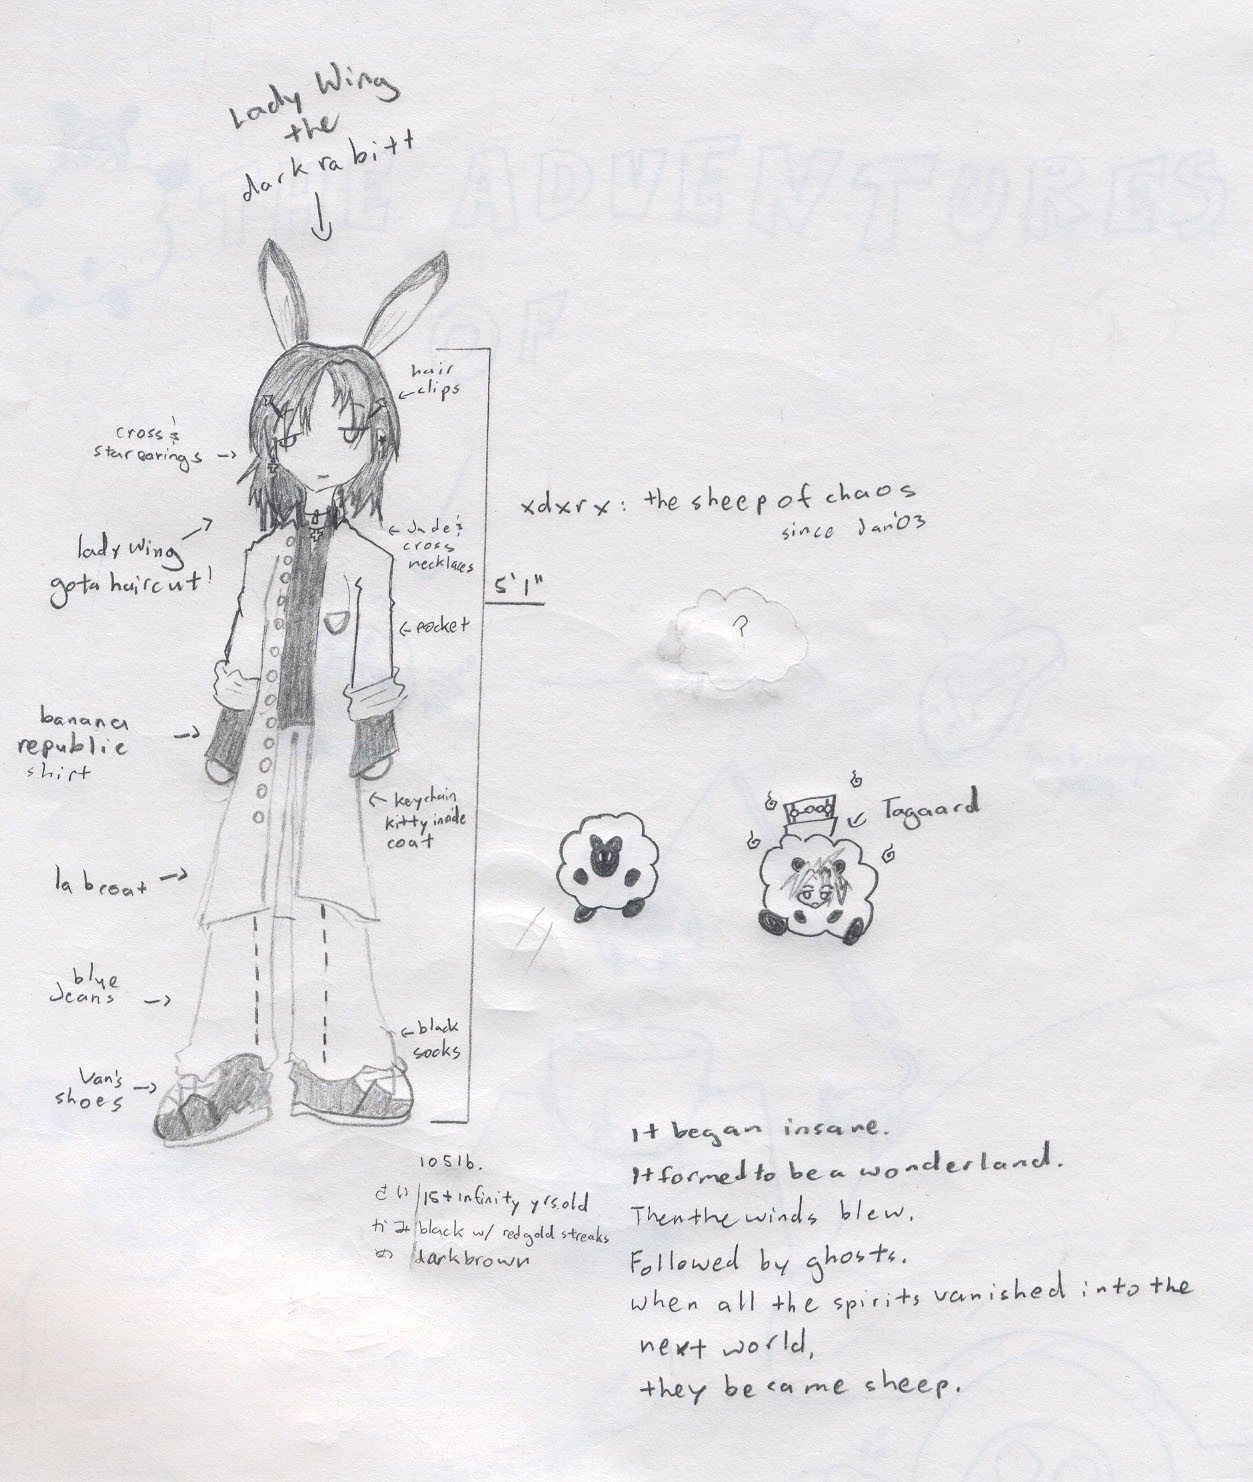 Lady Wing
the
darkrabitt
THE ADVENTURES
OF
hair
clips
cross &
starearings
lady wing
gota haircut!
Jade &
cross
necklaces
xdxrx: the sheep of chaos
since Jan'03
5'1"
pocket
?
banana
republic
shirt
keychain
kitty inside
coat
Tagaard
labcoat
blue
Jeans
black
socks
Van's
shoes
105lb.
さい/15+infinity yrs.old
かみ/black w/ redgold streaks
め/darkbrown
It began insane.
It formed to be a wonderland.
Then the winds blew.
Followed by ghosts.
When all the spirits vanished into the
next world,
they became sheep.